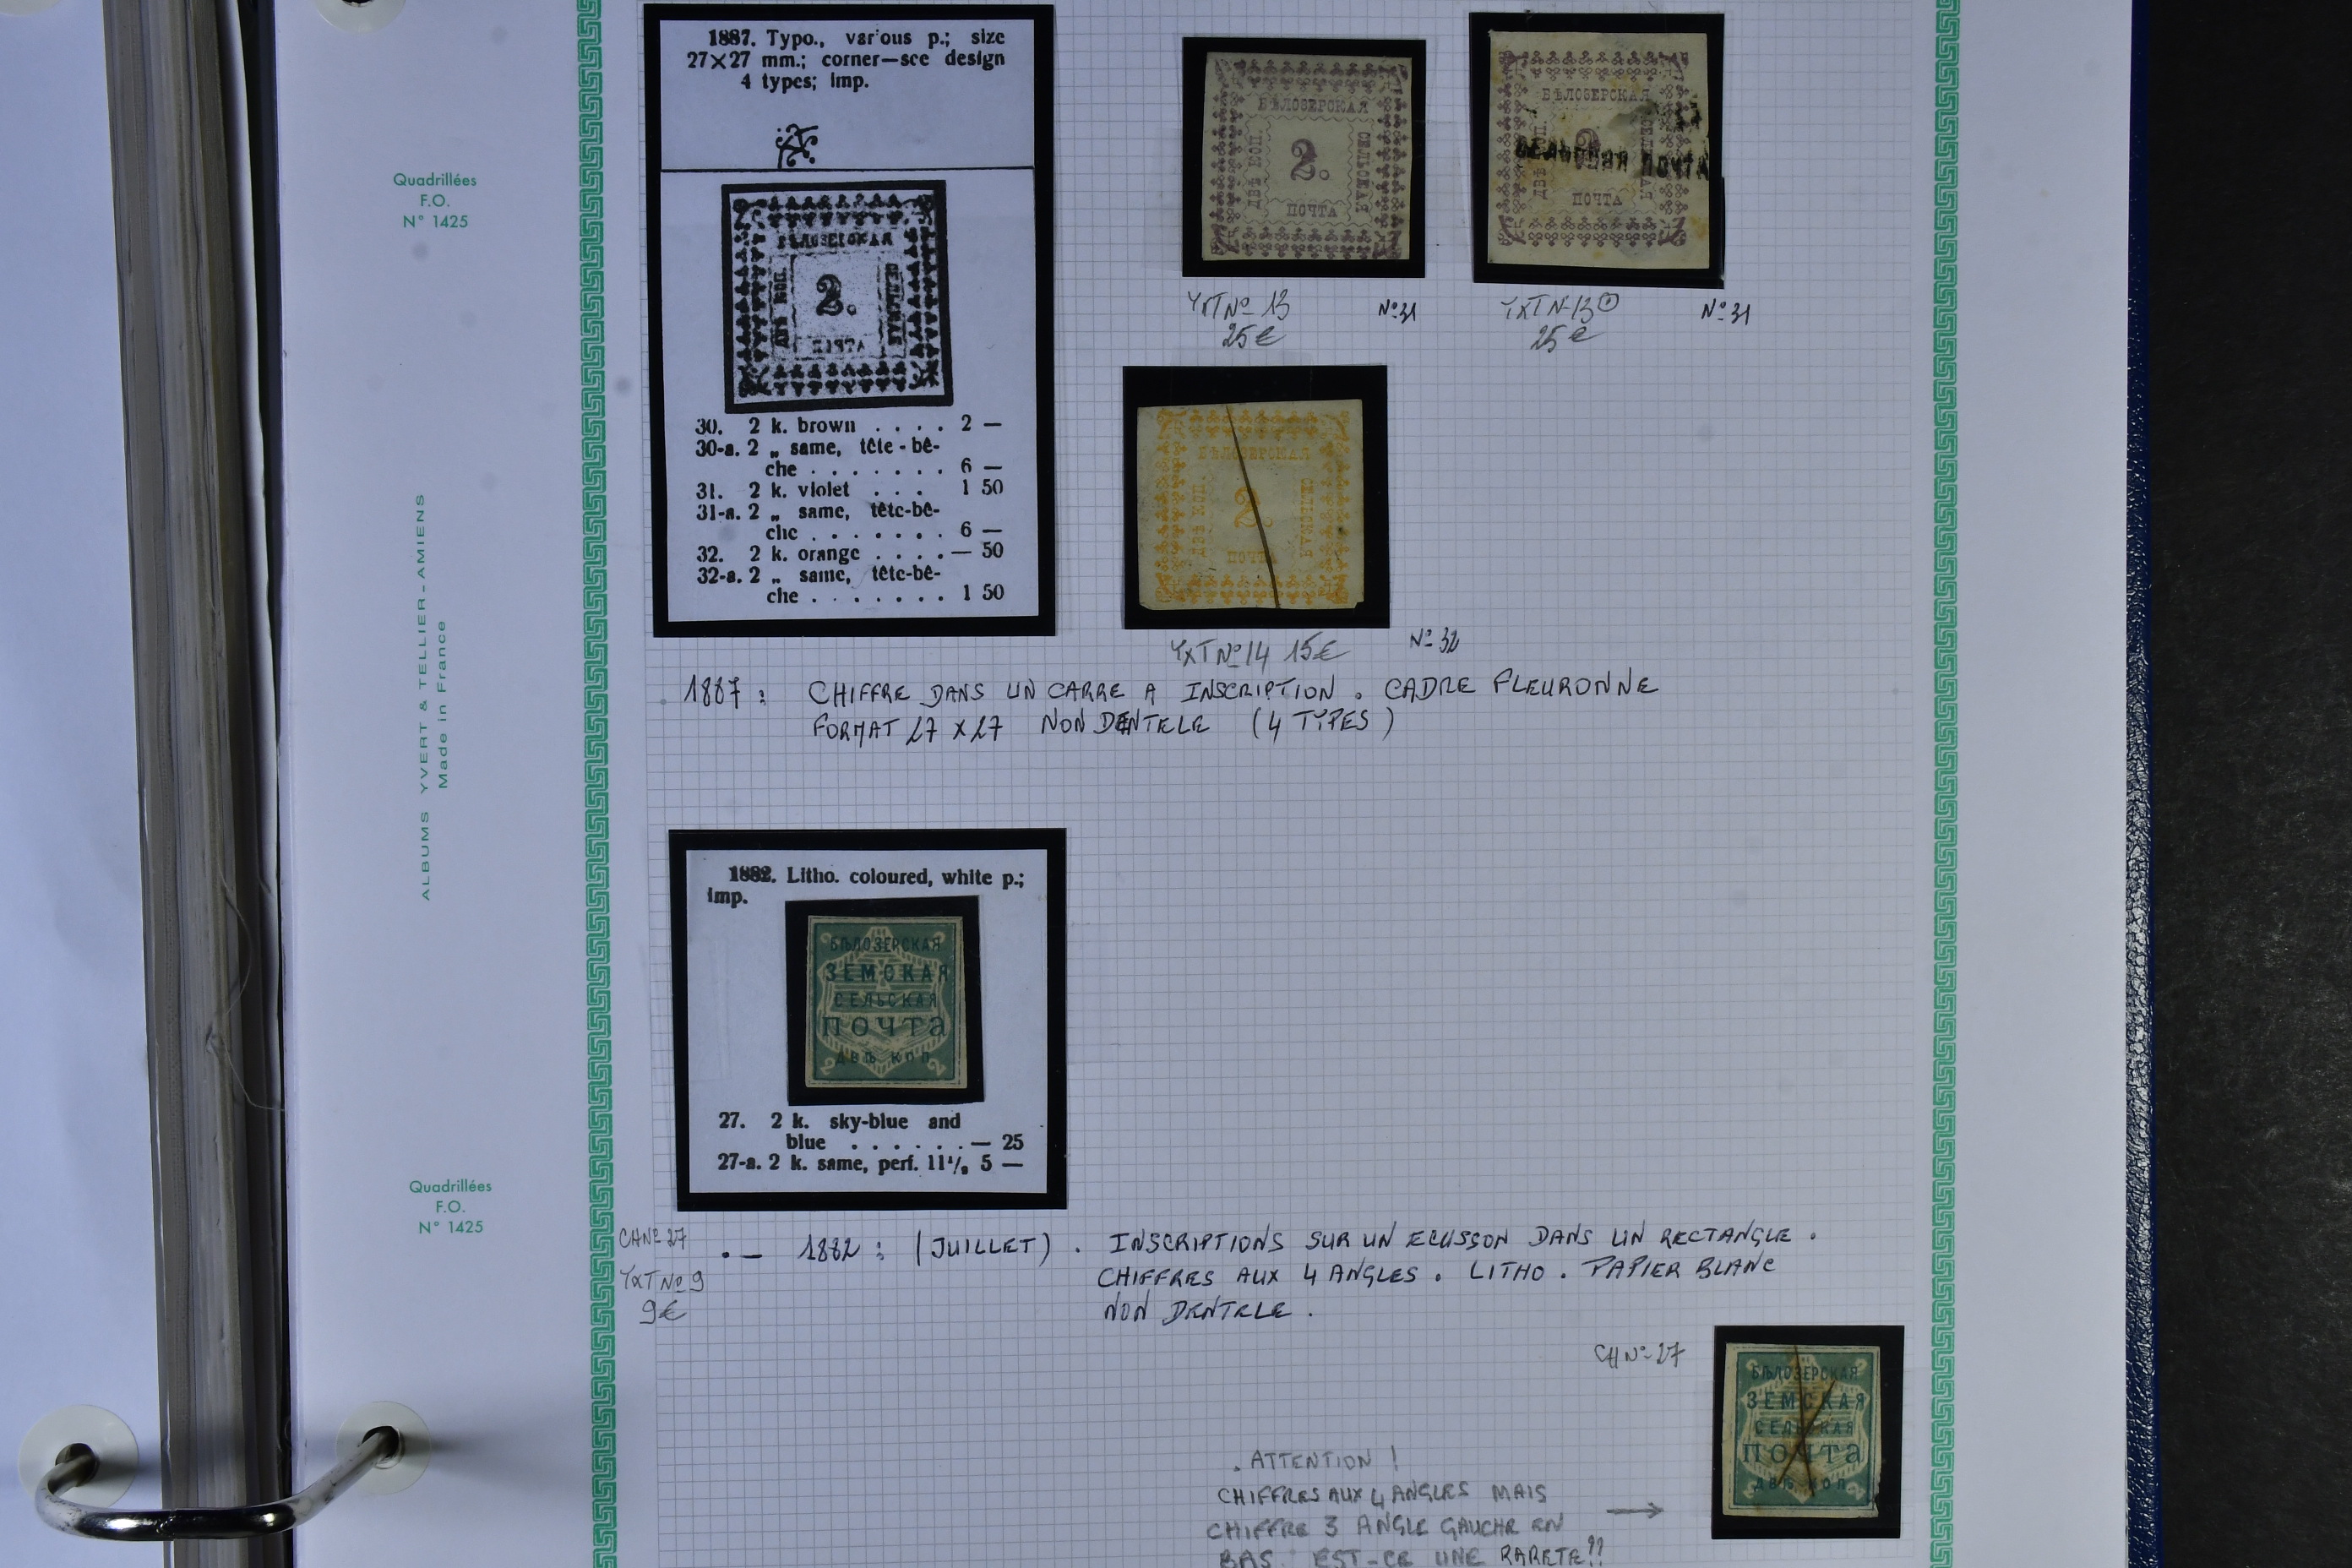 Quadrillées
F.O.
N° 1425
ALBUMS YVERT & TELLIER-AMIENS
Made in France
Quadrillées
F.O.
N° 1425
1887. Typo., var'ous p.; size
27×27 mm.; corner—see design
4 types; imp.
БѢЛОЗЕРСКАЯ
ДВѢ КОП.
2.
СЕЛЬСКАЯ
ПОЧТА
30. 2 k. brown . . . . 2 —
30-a. 2 „ same, tête-bê-
che . . . . . . . 6 —
31. 2 k. violet . . . 1 50
31-a. 2 „ same, tête-bê-
che . . . . . . . 6 —
32. 2 k. orange . . . . — 50
32-a. 2 „ same, tête-bê-
che . . . . . . . 1 50
БѢЛОЗЕРСКАЯ
ДВѢ КОП.
2.
СЕЛЬСКАЯ
ПОЧТА
YxT No 13
25€
No 31
БѢЛОЗЕРСКАЯ
ДВѢ КОП.
2
ПОЧТА
YxT No 13
25€
No 31
БѢЛОЗЕРСКАЯ
ДВѢ КОП.
2
СЕЛЬСКАЯ
ПОЧТА
YxT No 14 15€
No 32
1887 : CHIFFRE DANS UN CARRE A INSCRIPTION . CADRE FLEURONNE
FORMAT 27 x 27 NON DENTELE (4 TYPES)
1882. Litho. coloured, white p.;
imp.
БѢЛОЗЕРСКАЯ
ЗЕМСКАЯ
СЕЛЬСКАЯ
ПОЧТА
ДВѢ КОП
2 2
27. 2 k. sky-blue and
blue . . . . . . — 25
27-a. 2 k. same, perf. 11½, 5 —
CH No 27
YxT No 9
9€
. — 1882 : (JUILLET) . INSCRIPTIONS SUR UN ECUSSON DANS UN RECTANGLE .
CHIFFRES AUX 4 ANGLES . LITHO . PAPIER BLANC
NON DENTELE .
CH No 27
БѢЛОЗЕРСКАЯ
ЗЕМСКАЯ
СЕЛЬСКАЯ
ПОЧТА
ДВѢ КОП
. ATTENTION !
CHIFFRES AUX 4 ANGLES MAIS
CHIFFRE 3 ANGLE GAUCHE EN
BAS. EST-CE UNE RARETE !!